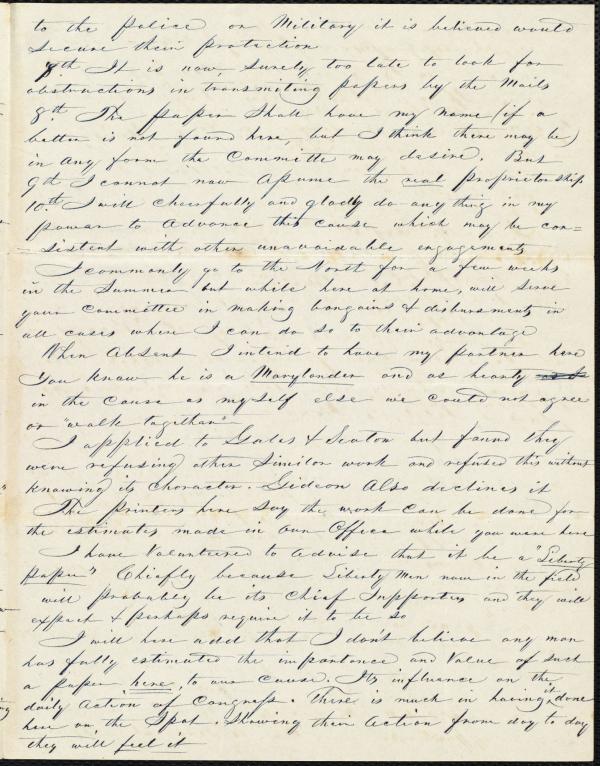 to the police or Military it is believed would
secure their protection
7th It is now, surely too late to look for
obstructions in transmiting papers by the Mails
8th. The paper shall have my name (if a
better is not found here, but I think there may be)
in any form the Committe may desire. But
9th I cannot now assume the real proprietorship
10th I will cheerfully and gladly do any thing in my
power to advance this cause which may be con=
=sistent with other unavoidable engagements
I commonly go to the North for a few weeks
in the Summer but while here at home, will serve
your Committee in making bargains & disbursments in
all cases where I can do so to their advantage
When absent I intend to have my partner here
You know he is a Marylander and as hearty
in the cause as myself else we could not agree
or "walk together"
I applied to Gales & Seaton but found they
were refusing other similar work and refused this without
knowing its character. Gideon also declines it
The printers here say the work can be done for
the estimates made in our Office while you were here
I have Volunteered to advise that it be a "Liberty
paper" Chiefly because Liberty men now in the field
will probably be its Chief Supporters and they will
expect & perhaps require it to be so
I will here add that I don't believe any man
has fully estimated the importance and Value of such
a paper here, to our cause. Its influence on the
daily action of Congress. There is much in having it done
here on the Spot. Showing their Action from day to day
they will feel it